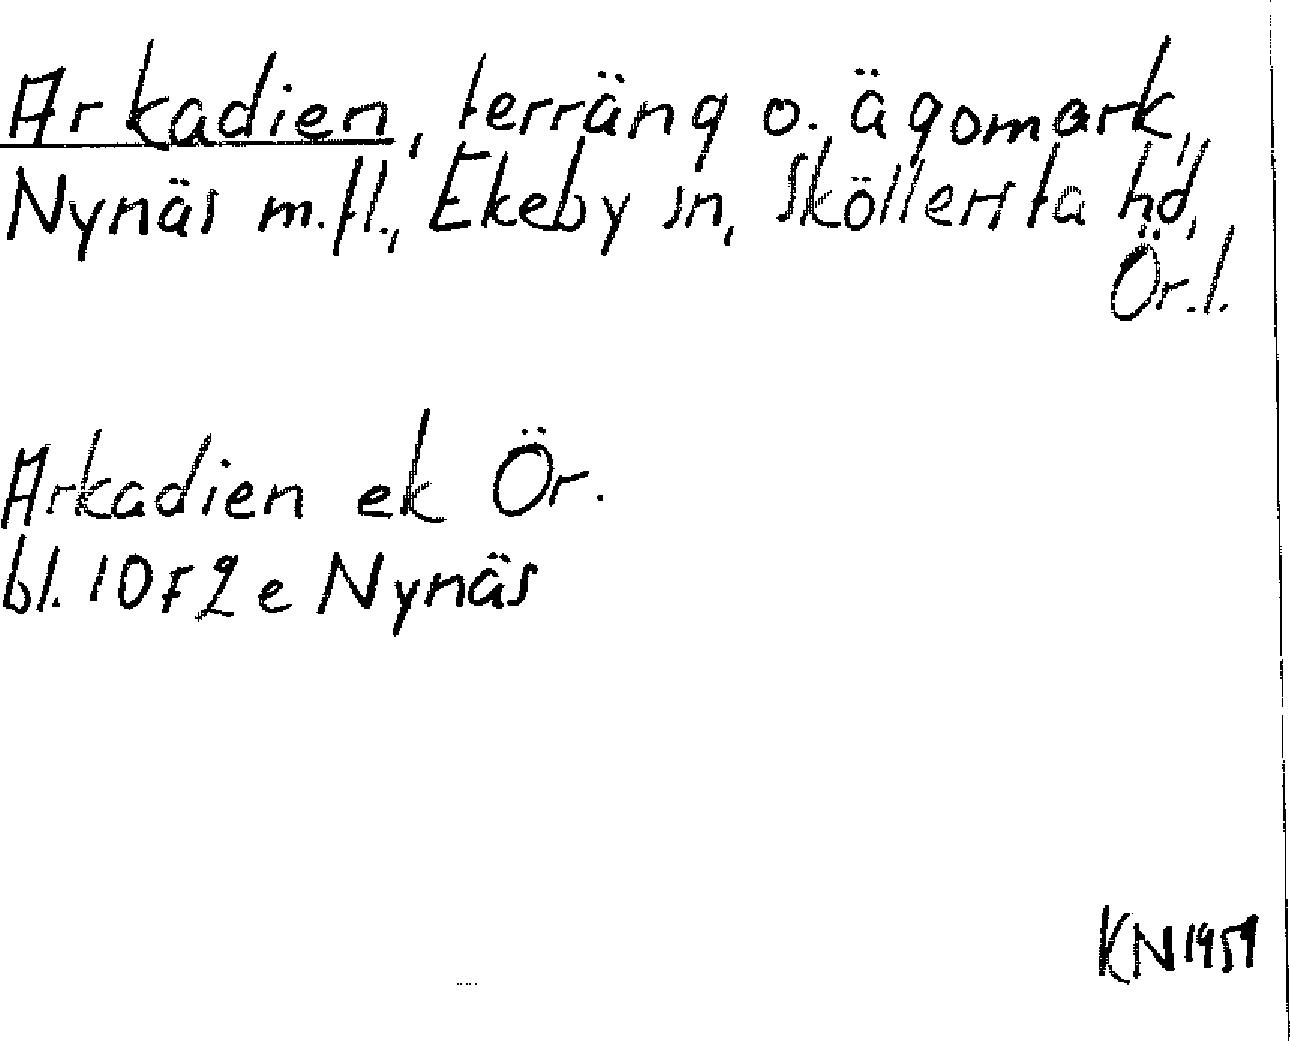 Arkadien, terräng o. ägomark,
Nynäs m.fl., Ekeby sn, Sköllersta hd,
Ör.l.
Arkadien ek Ör.
bl. 10F2e Nynäs
KN 1959